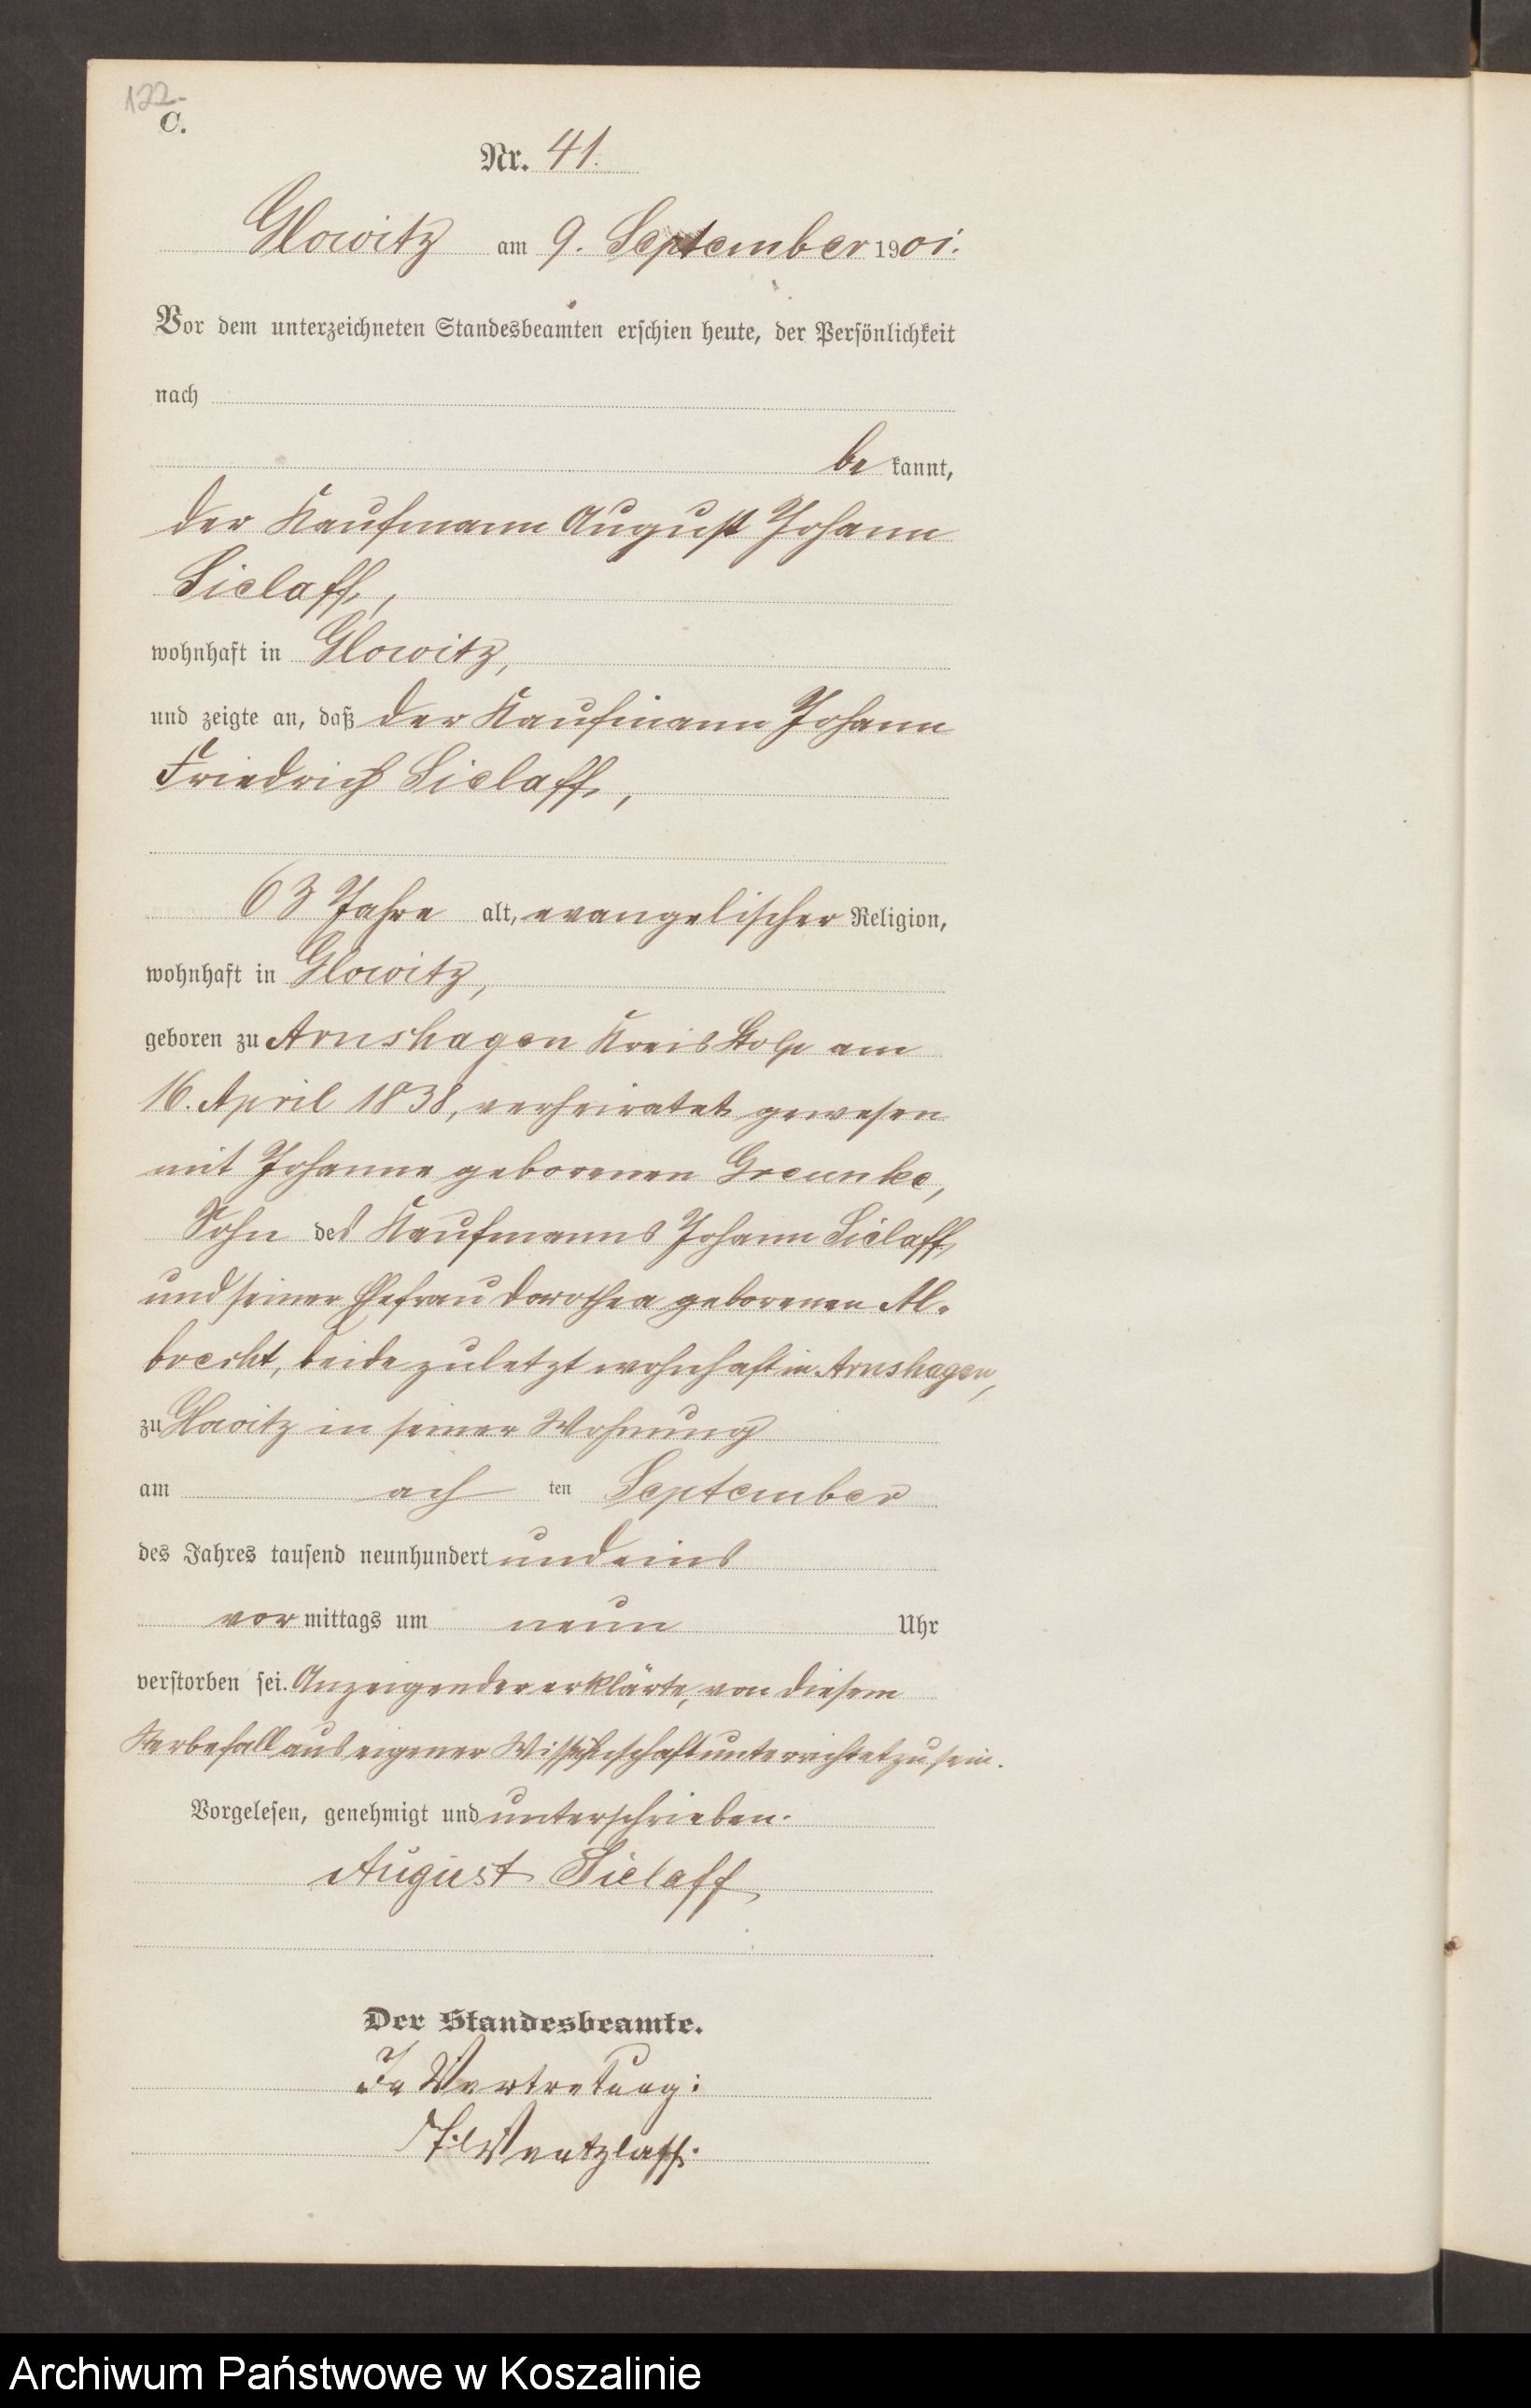 122.
C.
Nr. 41.
Glowitz am 9. September 1901.
Vor dem unterzeichneten Standesbeamten erschien heute, der Persönlichkeit
nach
be kannt,
der Kaufmann August Johann
Sielaff,
wohnhaft in Glowitz,
und zeigte an, daß der Kaufmann Johann
Friedrich Sielaff,
63 Jahre alt, evangelischer Religion,
wohnhaft in Glowitz,
geboren zu Arnshagen Kreis Stolp am
16. April 1838, verheiratet gewesen
mit Johanne geborenen Greunke,
Sohn des Kaufmanns Johann Sielaff
und seiner Ehefrau Dorothea geborenen Al-
brecht, beide zuletzt wohnhaft in Arnshagen,
zu Glowitz in seiner Wohnung
am ach ten September
des Jahres tausend neunhundert und eins
vor mittags um neun Uhr
verstorben sei. Anzeigender erklärte, von diesem
Sterbefall aus eigener Wissenschaft unterrichtet zu sein.
Vorgelesen, genehmigt und unterschrieben.
August Sielaff
Der Standesbeamte.
In Vertretung:
Wentzlaff.
Archiwum Państwowe w Koszalinie